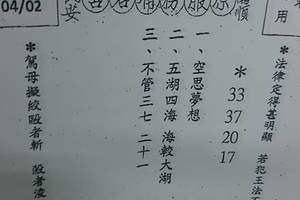 用
＊法律定得甚明顯 若犯王法
＊
33
37
20
17
一、空思夢想
二、五湖四海 海較大湖
三、不管三七 二十一
04/02
＊罵母擬絞毆者斬 殺者凌